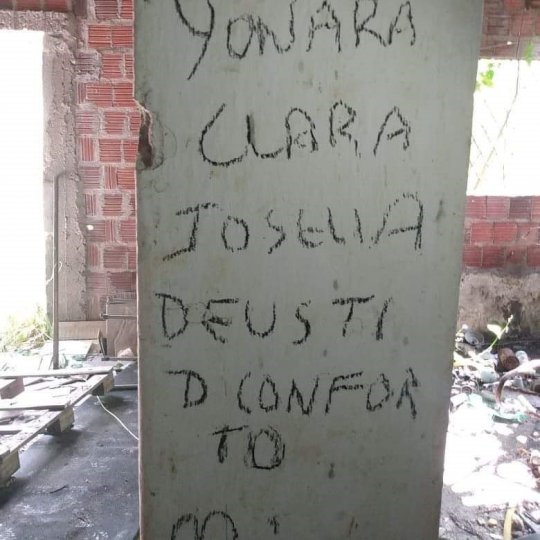 YONARA
CLARA
JOSELIA
DEUS TI
D CONFOR
TO